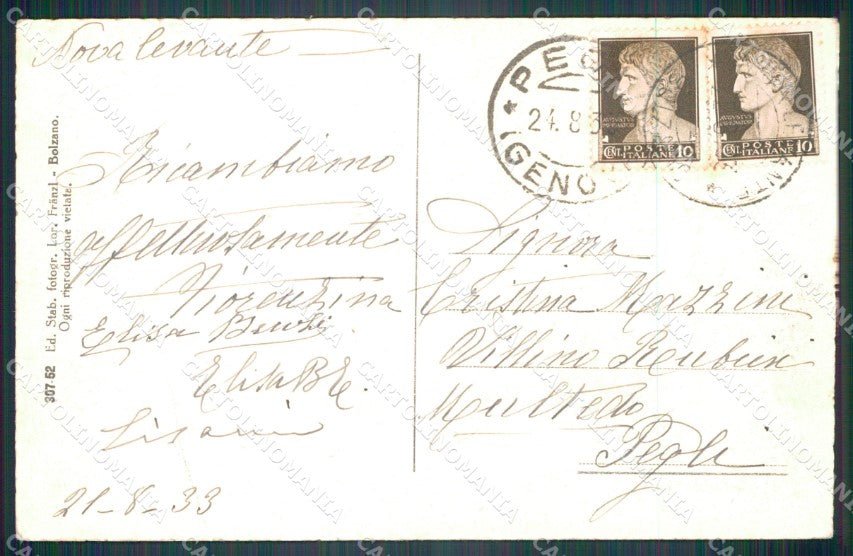 Nova levante
Ricambiamo
affettuosamente
Fiorenzina
Elisa
Elisa
21-8-33
307-52 Ed. Stab. fotogr. Lor. Fränzl - Bolzano.
Ogni riproduzione vietata.
PEG
24.8.3
GENO
AVGVSTVS
POSTE
CENT. ITALIANE 10
POSTE
CENT. ITALIANE 10
Signora
Cristina Mazzini
Villino
Multedo
Pegli
CARTOLINOMANIA